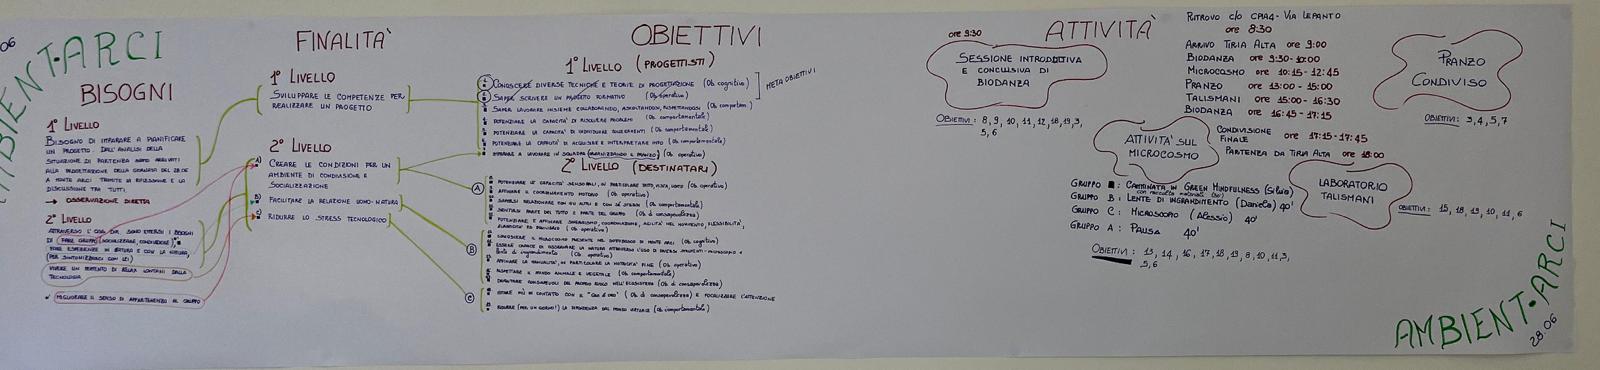 AMBIENT-ARCI
BISOGNI
1° LIVELLO
BISOGNO DI IMPARARE A PIANIFICARE
UN PROGETTO. DALL'ANALISI DELLA
SITUAZIONE DI PARTENZA SIAMO ARRIVATI
ALLA PROGETTAZIONE DELLA GIORNATA DEL 28.06
A MONTE ARCI TRAMITE LA RIFLESSIONE E LA
DISCUSSIONE TRA TUTTI.
→ OSSERVAZIONE DIRETTA
2° LIVELLO
SONO EMERSI I BISOGNI
DI FARE GRUPPO (SOCIALIZZARE, CONDIVIDERE),
FARE ESPERIENZE IN NATURA E CON LA NATURA,
(PER SINTONIZZARCI CON LEI)
VIVERE UN MOMENTO DI RELAX LONTANI DALLA
TECNOLOGIA
MIGLIORARE IL SENSO DI APPARTENENZA AL GRUPPO
FINALITA'
1° LIVELLO
SVILUPPARE LE COMPETENZE PER
REALIZZARE UN PROGETTO
2° LIVELLO
A) CREARE LE CONDIZIONI PER UN
AMBIENTE DI CONDIVISIONE E
SOCIALIZZAZIONE
B) FACILITARE LA RELAZIONE UOMO-NATURA
C) RIDURRE LO STRESS TECNOLOGICO
OBIETTIVI
1° LIVELLO (PROGETTISTI)
CONOSCERE DIVERSE TECNICHE E TEORIE DI PROGETTAZIONE (Ob cognitivo)
SAPER SCRIVERE UN PROGETTO FORMATIVO (Ob operativo)
META OBIETTIVI
SAPER LAVORARE INSIEME COLLABORANDO, ASCOLTANDOSI, RISPETTANDOSI (Ob comportam.)
POTENZIARE LA CAPACITA' DI RISOLVERE PROBLEMI (Ob comportamentale)
POTENZIARE LA CAPACITA' DI INDIVIDUARE COLLEGAMENTI (Ob comportamentale)
POTENZIARE LA CAPACITA' DI ACQUISIRE E INTERPRETARE INFO (Ob comportamentale)
IMPARARE A LAVORARE IN SQUADRA (ORGANIZZANDO IL PRANZO) (Ob operativo)
2° LIVELLO (DESTINATARI)
A
POTENZIARE LE CAPACITA' SENSORIALI, IN PARTICOLARE TATTO, VISTA, UDITO (Ob operativo)
AFFINARE IL COORDINAMENTO MOTORIO (Ob operativo)
SAPERSI RELAZIONARE CON GLI ALTRI E CON SÉ STESSI (Ob operativo)
SENTIRSI PARTE DEL TUTTO E PARTE DEL GRUPPO (Ob di consapevolezza)
B
CONOSCERE IL MICROCOSMO PRESENTE NEL SOTTOBOSCO DI MONTE ARCI (Ob cognitivo)
ESSERE CAPACE DI OSSERVARE LA NATURA ATTRAVERSO L'USO DI DIVERSI STRUMENTI: MICROSCOPIO e
lente di ingrandimento (Ob operativo)
AFFINARE LA MANUALITA', IN PARTICOLARE LA MOTRICITA' FINE (Ob operativo)
RISPETTARE IL MONDO ANIMALE E VEGETALE (Ob comportamentale)
DIVENTARE CONSAPEVOLI DEL PROPRIO RUOLO NELL'ECOSISTEMA (Ob di consapevolezza)
C
STARE PIÙ IN CONTATTO CON IL "QUI E ORA" (Ob di consapevolezza) E FOCALIZZARE L'ATTENZIONE
RIDURRE (PER UN GIORNO!) LA DIPENDENZA DAL MONDO VIRTUALE (Ob comportamentale)
ATTIVITA'
ore 9:30
SESSIONE INTRODUTTIVA
E CONCLUSIVA DI
BIODANZA
OBIETTIVI: 8, 9, 10, 11, 12, 18, 19, 3,
5, 6
RITROVO c/o CPIA4 - VIA LEPANTO
ore 8:30
ARRIVO TIRIA ALTA ore 9:00
BIODANZA ore 9:30 - 10:00
MICROCOSMO ore 10:15 - 12:45
PRANZO ore 13:00 - 15:00
TALISMANI ore 15:00 - 16:30
BIODANZA ore 16:45 - 17:15
CONDIVISIONE
FINALE ore 17:15 - 17:45
PARTENZA DA TIRIA ALTA ore 18:00
PRANZO
CONDIVISO
OBIETTIVI: 3, 4, 5, 7
ATTIVITA' SUL
MICROCOSMO
GRUPPO : CAMMINATA IN GREEN MINDFULNESS (Silvia)
GRUPPO B: LENTE DI INGRANDIMENTO (Daniela) 40'
GRUPPO C: MICROSCOPIO (Alessio) 40'
GRUPPO A: PAUSA 40'
OBIETTIVI: 13, 14, 16, 17, 18, 19, 8, 10, 11, 3,
5, 6
LABORATORIO
TALISMANI
OBIETTIVI: 15, 18, 19, 10, 11, 6
AMBIENT-ARCI
28.06